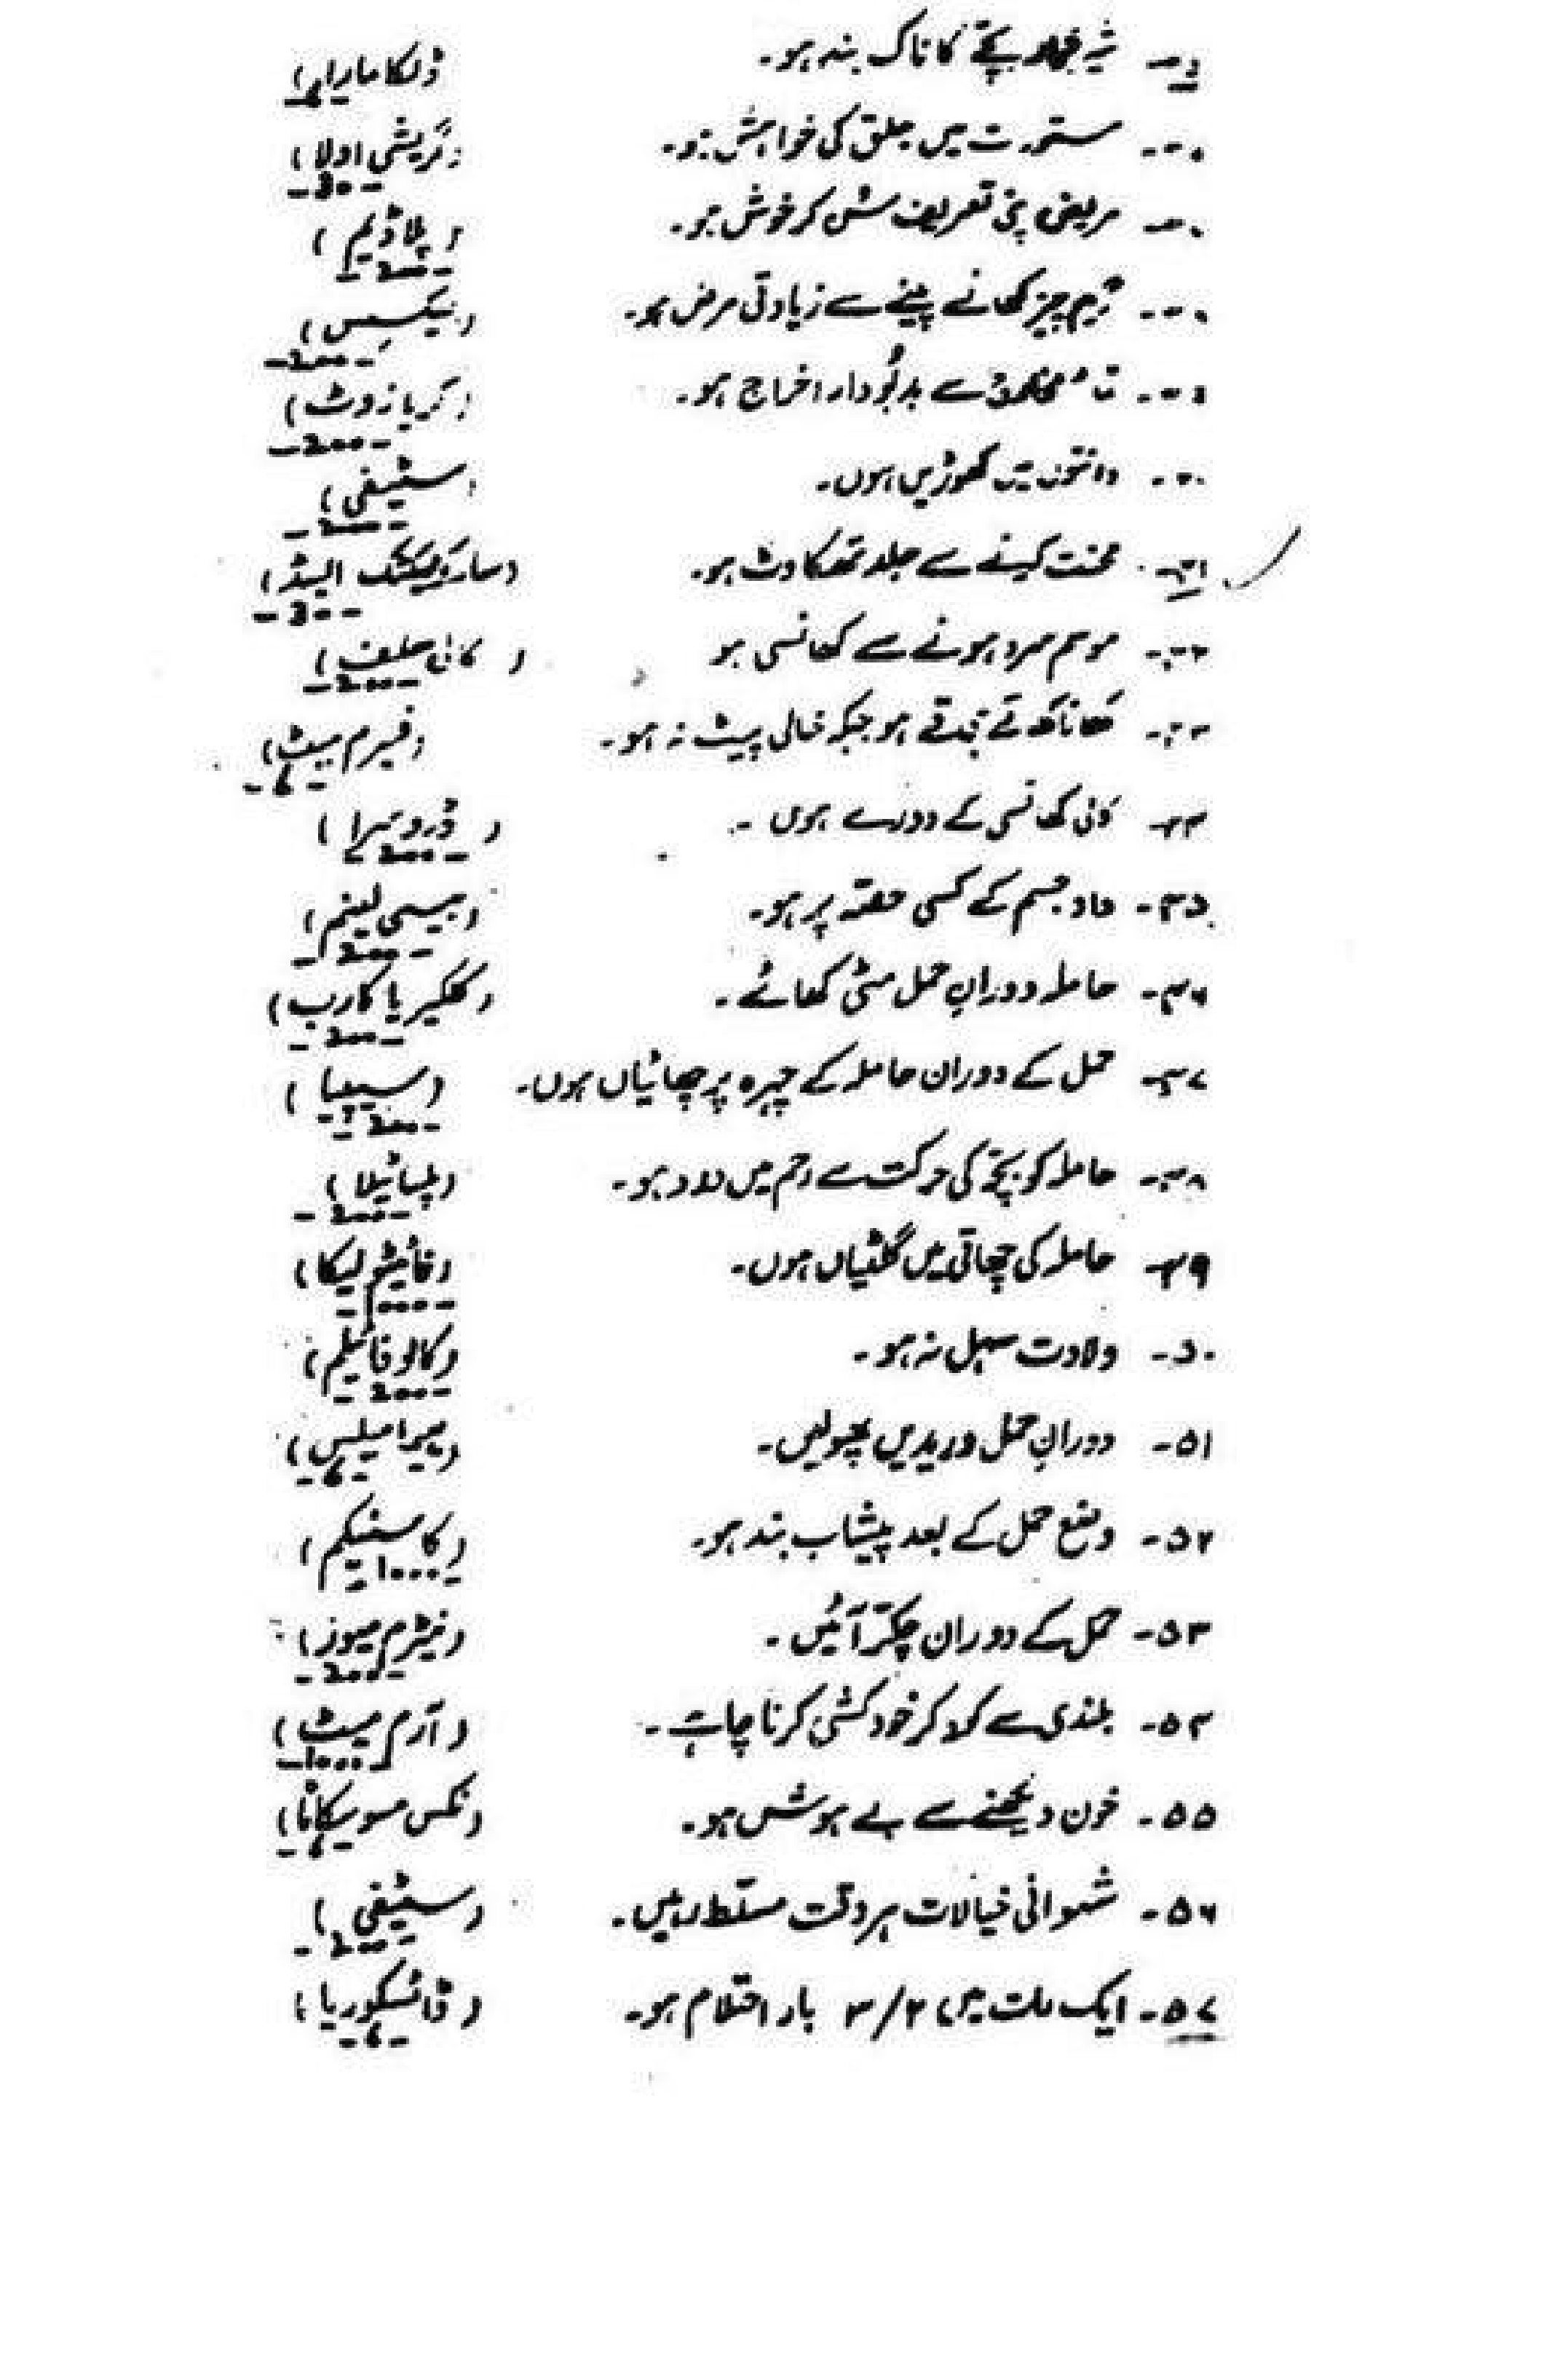 شیرخوار بچّے کا ناک بند ہو۔ (ڈلکا مارا)
مستورت میں جلق کی خواہش ہو۔ (گریشی اولا) 30
مریض اپنی تعریف سُن کر خوش ہو۔ (پلاڈیم) 200
گرم چیز کھانے پینے سے زیادتی مرض ہو۔ 200
تمام مخارج سے بدبُودار اخراج ہو۔ (کریازوٹ) 200
دانتوں میں کھوڑیں ہوں۔ (سٹیفی)
۴۱۔ محنت کرنے سے جلد تھکاوٹ ہو۔ (سارکولیکٹک ایسڈ) 30
۴۲۔ موسم سرد ہونے سے کھانسی ہو (کالی سلف) 200
۴۳۔ کھانا کھاتے ہی قے ہو جبکہ خالی پیٹ نہ ہو۔ (فیرم میٹ) 6
۴۴۔ کالی کھانسی کے دورے ہوں۔ (ڈروسرا) 200
۴۵۔ داد جسم کے کسی حصّہ پر ہو۔ (بیسی لینم) 200
۴۶۔ حاملہ دورانِ حمل مٹی کھائے۔ (کلکیریا کارب) 200
۴۷۔ حمل کے دوران حاملہ کے چہرہ پر چھائیاں ہوں۔ (سیپیا) 200
۴۸۔ حاملہ کو بچّے کی حرکت سے رحم میں درد ہو۔ (پلساٹیلا) 200
۴۹۔ حاملہ کی چھاتی میں گلٹیاں ہوں۔ (فائیٹولیکا) 1000
۵۰۔ ولادت سہل نہ ہو۔ (کالوفائیلم) 200
۵۱۔ دورانِ حمل وریدیں پھولیں۔ (ہیمامیلس) 6
۵۲۔ وضع حمل کے بعد پیشاب بند ہو۔ (کاسٹیکم) 1000
۵۳۔ حمل کے دوران چکّر آئیں۔ (نیٹرم میور) 200
۵۴۔ بلندی سے کود کر خودکشی کرنا چاہے۔ (آرم میٹ) 1000
۵۵۔ خون دیکھنے سے بے ہوش ہو۔ (نکس موسیکاٹا) 6
۵۶۔ شہوانی خیالات ہر وقت مسلّط رہیں۔ (سٹیفی) 200
۵۷۔ ایک رات میں ۲/۳ بار احتلام ہو۔ (ڈائسکوریا) 6